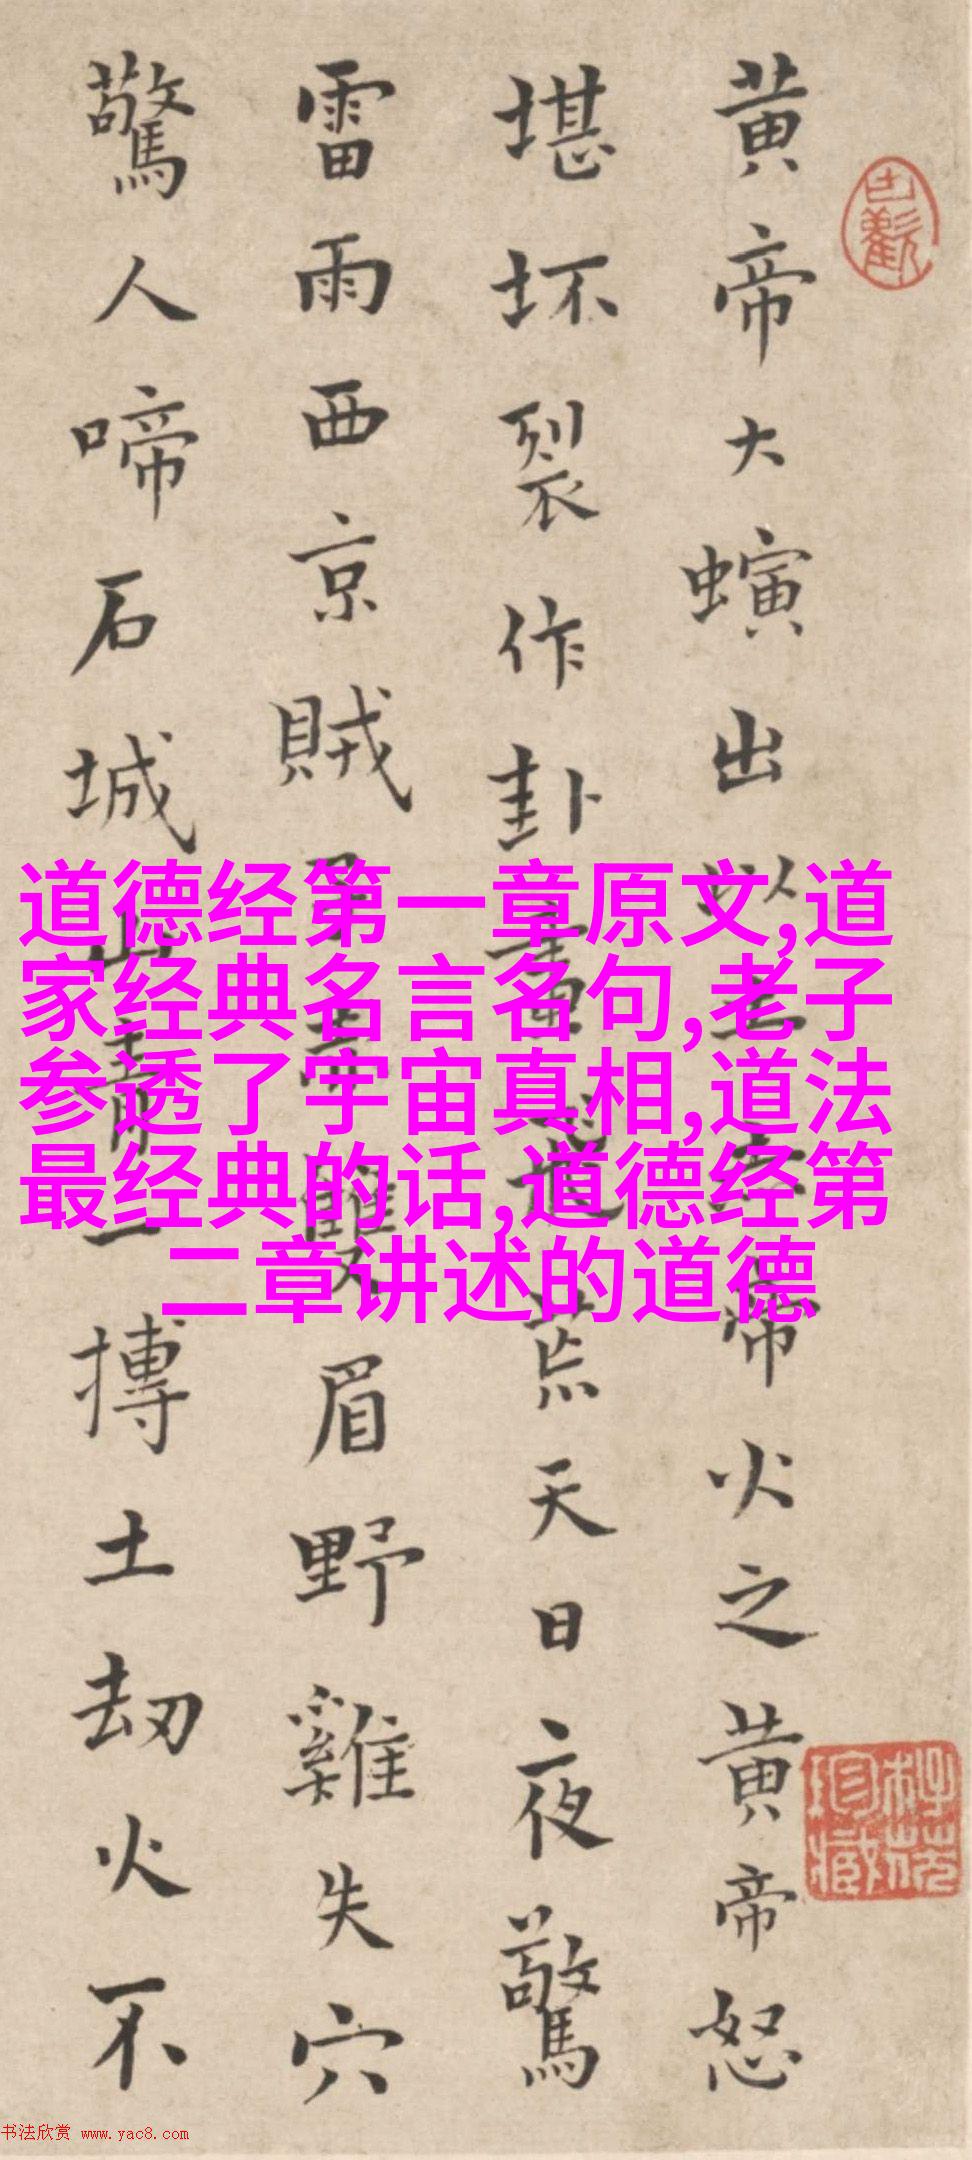 黄帝大螾出㠯土帝火之黄帝怒
堪坏裂作卦畫道荒天日夜驚
雷雨西京賊眉野雞失穴
驚人啼石城山青一摶土劫火不
道德经第一章原文,道
家经典名言名句,老子
参透了宇宙真相,道法
最经典的话,道德经第
二章讲述的道德
书法欣赏 www.yac8.com